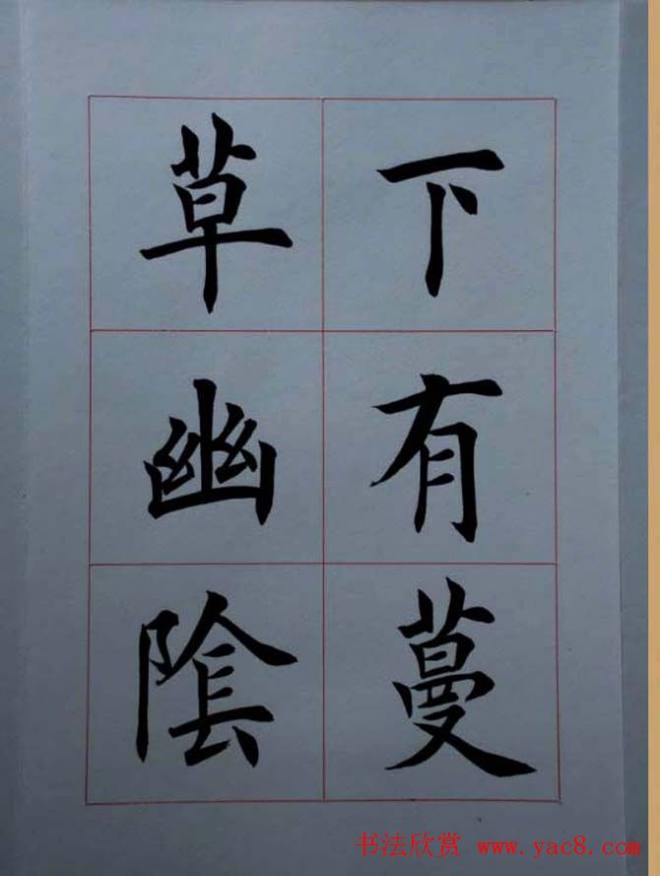 下有蔓
草幽陰
书法欣赏 www.yac8.com